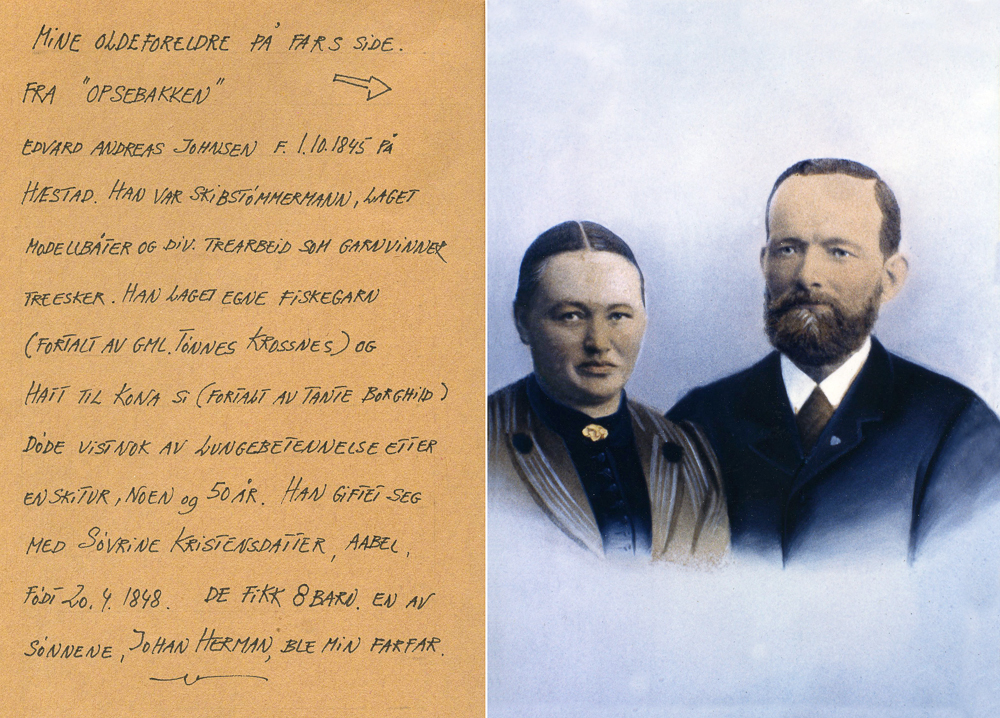 MINE OLDEFORELDRE PÅ FARS SIDE.
FRA "OPSEBAKKEN"
EDVARD ANDREAS JOHNSEN F. 1.10.1845 PÅ
HÆSTAD. HAN VAR SKIBSTÖMMERMANN, LAGET
MODELLBÅTER OG DIV. TREARBEID SOM GARNVINNER
TREESKER. HAN LAGET EGNE FISKEGARN
(FORTALT AV GML. TÖNNES KROSSNES) OG
HATT TIL KONA SI (FORTALT AV TANTE BORGHILD)
DÖDE VISTNOK AV LUNGEBETENNELSE ETTER
EN SKITUR, NOEN og 50 ÅR. HAN GIFTET SEG
MED SÖVRINE KRISTENSDATTER, AABEL,
FÖDT 20.4. 1848. DE FIKK 8 BARN. EN AV
SÖNNENE, JOHAN HERMAN, BLE MIN FARFAR.